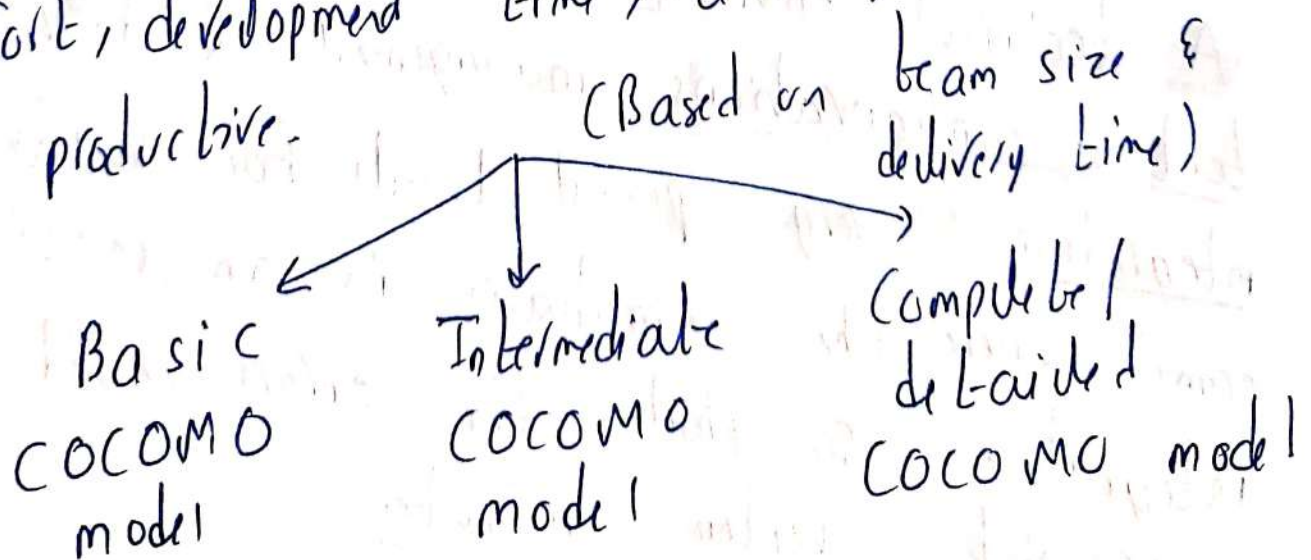 development time,
productive. (Based on team size &
delivery time)
Basic
COCOMO
model
Intermediate
COCOMO
model
Complete/
detailed
COCOMO model